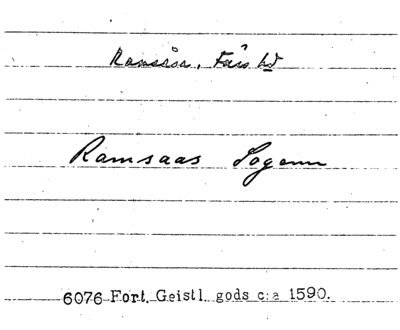 Ramsåsa, Färs hd
Ramsaas Sogenn
6076 Fort. Geistl. gods c:a 1590.